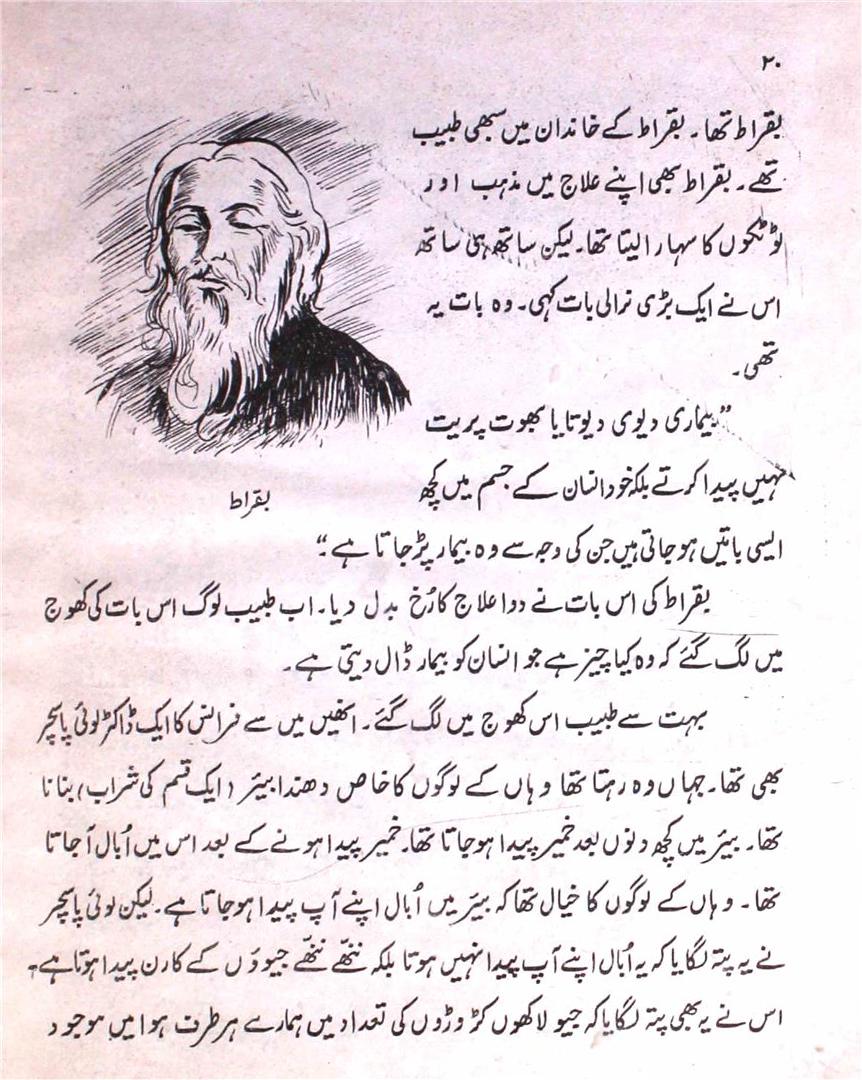 ۲۰
بقراط تھا۔ بقراط کے خاندان میں سبھی طبیب
تھے۔ بقراط بھی اپنے علاج میں مذہب اور
ٹوٹکوں کا سہارا لیتا تھا۔ لیکن ساتھ ہی ساتھ
اس نے ایک بڑی نرالی بات کہی۔ وہ بات یہ
تھی۔
”بیماری دیوی دیوتا یا بھوت پریت
نہیں پیدا کرتے بلکہ خود انسان کے جسم میں کچھ
بقراط
ایسی باتیں ہو جاتی ہیں جن کی وجہ سے وہ بیمار پڑ جاتا ہے“
بقراط کی اس بات نے دوا علاج کا رُخ بدل دیا۔ اب طبیب لوگ اس بات کی کھوج
میں لگ گئے کہ وہ کیا چیز ہے جو انسان کو بیمار ڈال دیتی ہے۔
بہت سے طبیب اس کھوج میں لگ گئے۔ انھیں میں سے فرانس کا ایک ڈاکٹر لوئی پاسچر
بھی تھا۔ جہاں وہ رہتا تھا وہاں کے لوگوں کا خاص دھندا بیئر (ایک قسم کی شراب) بنانا
تھا۔ بیئر میں کچھ دنوں بعد خمیر پیدا ہو جاتا تھا۔ خمیر پیدا ہونے کے بعد اس میں اُبال آ جاتا
تھا۔ وہاں کے لوگوں کا خیال تھا کہ بیئر میں اُبال اپنے آپ پیدا ہو جاتا ہے۔ لیکن لوئی پاسچر
نے یہ پتہ لگایا کہ یہ اُبال اپنے آپ پیدا نہیں ہوتا بلکہ ننھّے ننھّے جیوؤں کے کارن پیدا ہوتا ہے۔
اس نے یہ بھی پتہ لگایا کہ جیو لاکھوں کڑوڑوں کی تعداد میں ہمارے ہر طرف ہوا میں موجود